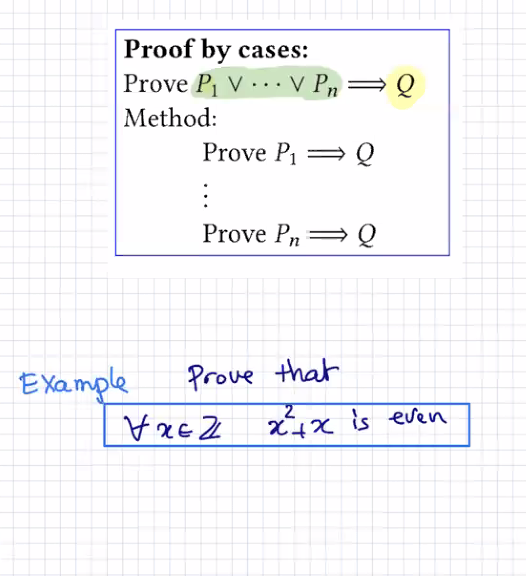 Proof by cases:
Prove P₁ ∨ ··· ∨ Pₙ ⟹ Q
Method:
Prove P₁ ⟹ Q
⋮
Prove Pₙ ⟹ Q
Example Prove that
∀ x ∈ ℤ x² + x is even